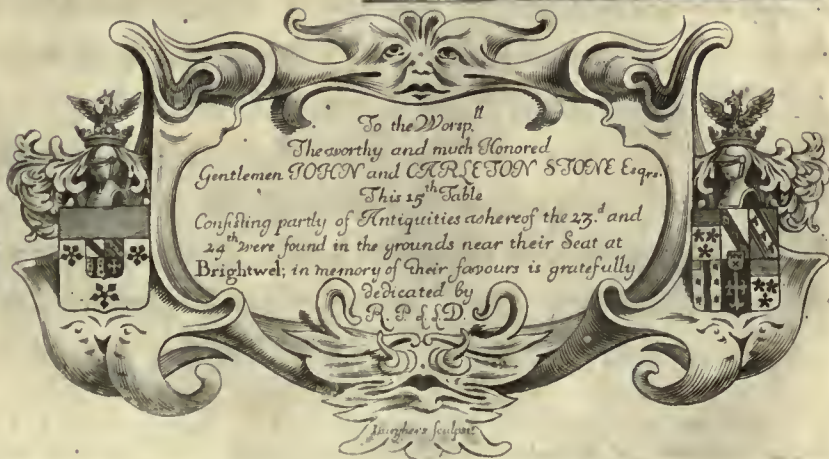 To the Worsp.ll
The worthy and much Honored
Gentlemen IOHN and CARLETON STONE Esqrs.
This 15th Table
Consisting partly of Antiquities whereof the 23.d and
24th were found in the grounds near their Seat at
Brightwel; in memory of their favours is gratefully
dedicated by
R. P. L L.D.
Burghers sculpsit